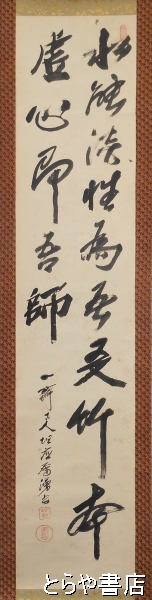 水能淡性為吾友竹本
虚心即吾師
とらや書店